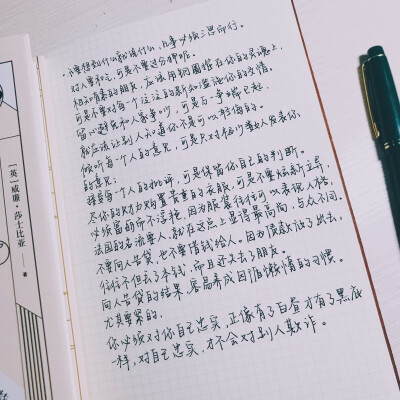 ·不要想到什么就说什么,凡事必须三思而行。
对人要和气,可是不要过分狎昵。
相知有素的朋友,应该用钢圈箍在你的灵魂上,
可是不要对每个泛泛的新知滥施你的交情。
留心避免和人家争吵,可是万一争端已起,
就应该让别人知道你不是可以轻侮的。
倾听每一个人的意见,可是只对极少数人发表你
的意见;
接受每一个人的批评,可是保留你自己的判断。
尽你的财力购置贵重的衣服,可是不要炫新立异,
必须富丽而不浮艳,因为服装往往可以表现人格,
法国的名流要人,就在这点上显得最高尚,与众不同。
不要向人告贷,也不要借钱给人,因为债款放了出去,
往往不但丢了本钱,而且还失去了朋友。
向人告贷的结果,容易养成因循懒惰的习惯。
尤其要紧的,
你必须对你自己忠实,正像有了白昼才有了黑夜
一样,对自己忠实,才不会对别人欺诈。
[英]威廉·莎士比亚——著